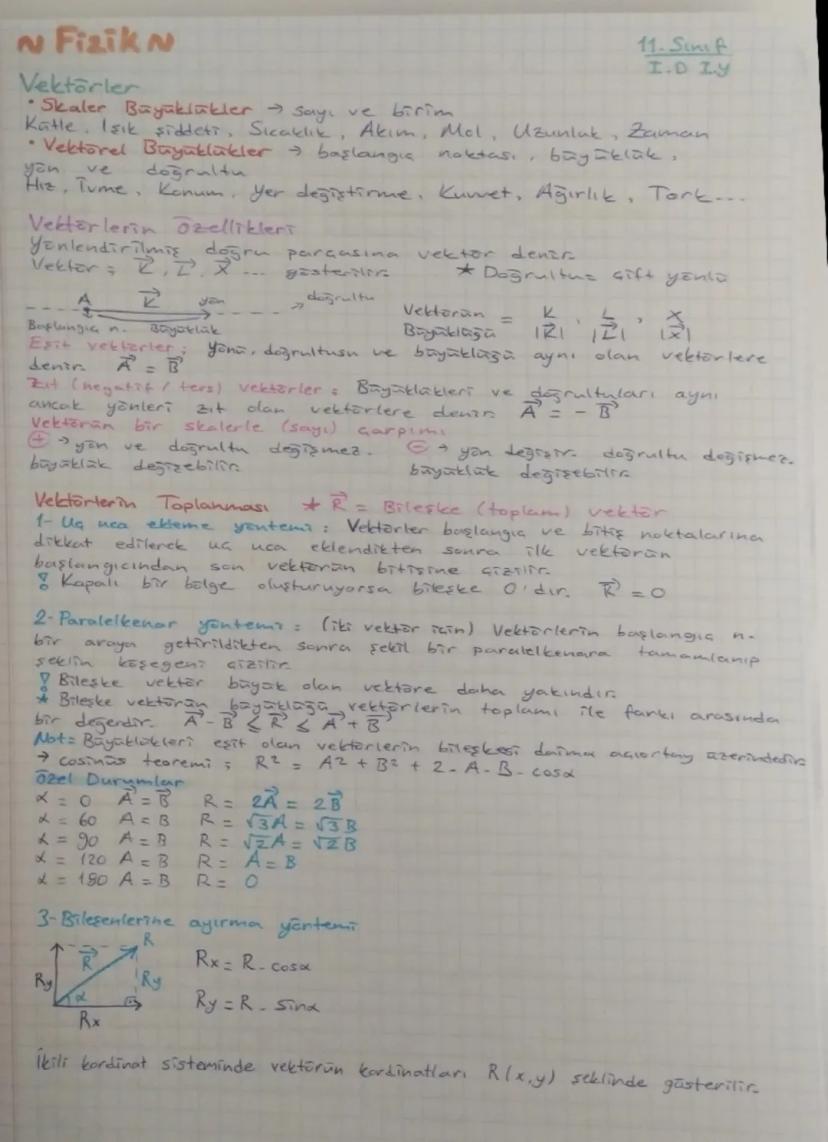 ~ Fizik ~
11. Sınıf
I.D I.Y
Vektörler
• Skaler Büyüklükler → sayı ve birim
Kütle, Işık şiddeti, Sıcaklık, Akım, Mol, Uzunluk, Zaman
• Vektörel Büyüklükler → başlangıç noktası, büyüklük,
yön ve doğrultu
Hız, İvme, Konum, Yer değiştirme, Kuvvet, Ağırlık, Tork...
Vektörlerin özellikleri
Yönlendirilmiş doğru parçasına vektör denir.
Vektör = K⃗, L⃗, X⃗ ... gösterilir. * Doğrultu = çift yönlü
A K⃗ yön → doğrultu
Başlangıç n. Büyüklük
Vektörün = K, L, X
Büyüklüğü |K⃗| |L⃗| |X⃗|
Eşit vektörler: Yönü, doğrultusu ve büyüklüğü aynı olan vektörlere
denir. A⃗ = B⃗
Zıt (negatif / ters) vektörler: Büyüklükleri ve doğrultuları aynı
ancak yönleri zıt olan vektörlere denir. A⃗ = - B⃗
Vektörün bir skalerle (sayı) çarpımı
⊕ → yön ve doğrultu değişmez. ⊖ → yön değişir. doğrultu değişmez.
büyüklük değişebilir. büyüklük değişebilir.
Vektörlerin Toplanması * R⃗ = Bileşke (toplam) vektör
1- Uç uca ekleme yöntemi: Vektörler başlangıç ve bitiş noktalarına
dikkat edilerek uç uca eklendikten sonra ilk vektörün
başlangıcından son vektörün bitişine çizilir.
! Kapalı bir bölge oluşturuyorsa bileşke 0'dır. R⃗ = 0
2- Paralelkenar yöntemi: (iki vektör için) Vektörlerin başlangıç n.
bir araya getirildikten sonra şekil bir paralelkenara tamamlanıp
şeklin köşegeni çizilir.
! Bileşke vektör büyük olan vektöre daha yakındır.
* Bileşke vektörün büyüklüğü vektörlerin toplamı ile farkı arasında
bir değerdir. A⃗ - B⃗ ≤ R⃗ ≤ A⃗ + B⃗
Not = Büyüklükleri eşit olan vektörlerin bileşkesi daima açıortay üzerindedir.
→ cosinüs teoremi: R² = A² + B² + 2.A.B.cosα
Özel Durumlar
α = 0 A⃗ = B⃗ R = 2A⃗ = 2B⃗
α = 60 A = B R = √3A = √3B
α = 90 A = B R = √2A = √2B
α = 120 A = B R = A = B
α = 180 A = B R = 0
3- Bileşenlerine ayırma yöntemi
R
R⃗
Ry α Ry
Rx
Rx = R . cosα
Ry = R . sinα
İkili kordinat sisteminde vektörün kordinatları R(x,y) şeklinde gösterilir.